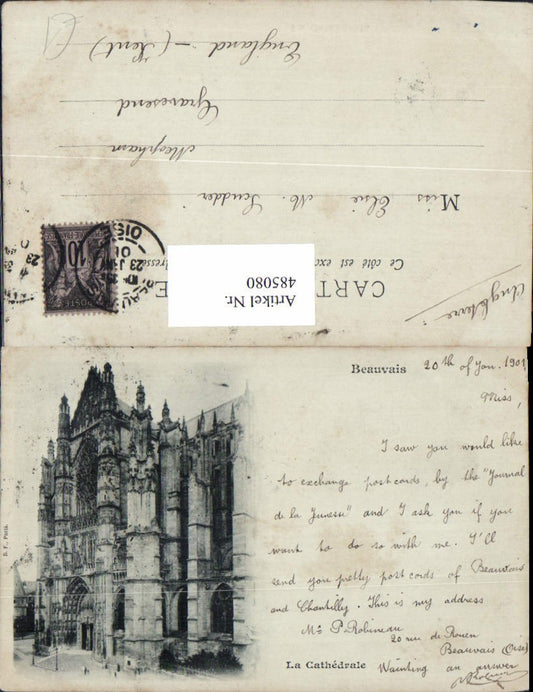 England - (Kent)
Gravesend
Meopham
Miss Elsie M. Scudder
Ce côté est exc
dresse
CART
E
Angleterre :
10
23
OISE
Artikel Nr.
485080
Beauvais 20th of Jan. 1901
Miss,
I saw you would like
to exchange post cards, by the "Journal
de la Junesse" and I ask you if you
want to do so with me. I'll
send you pretty post cards of Beauvais
and Chantilly. This is my address
Mr P. Robineau
20 rue de Rouen
Beauvais (Oise)
Wainting an answer
La Cathédrale
B. F., Paris.